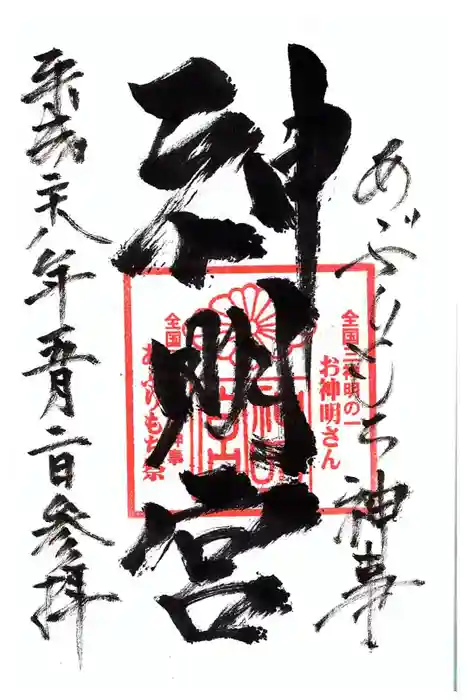 あぶりもち神事
神明宮
全国三神明の一
お神明さん
全国
あぶりもち祭
平成二十八年五月二日参拝